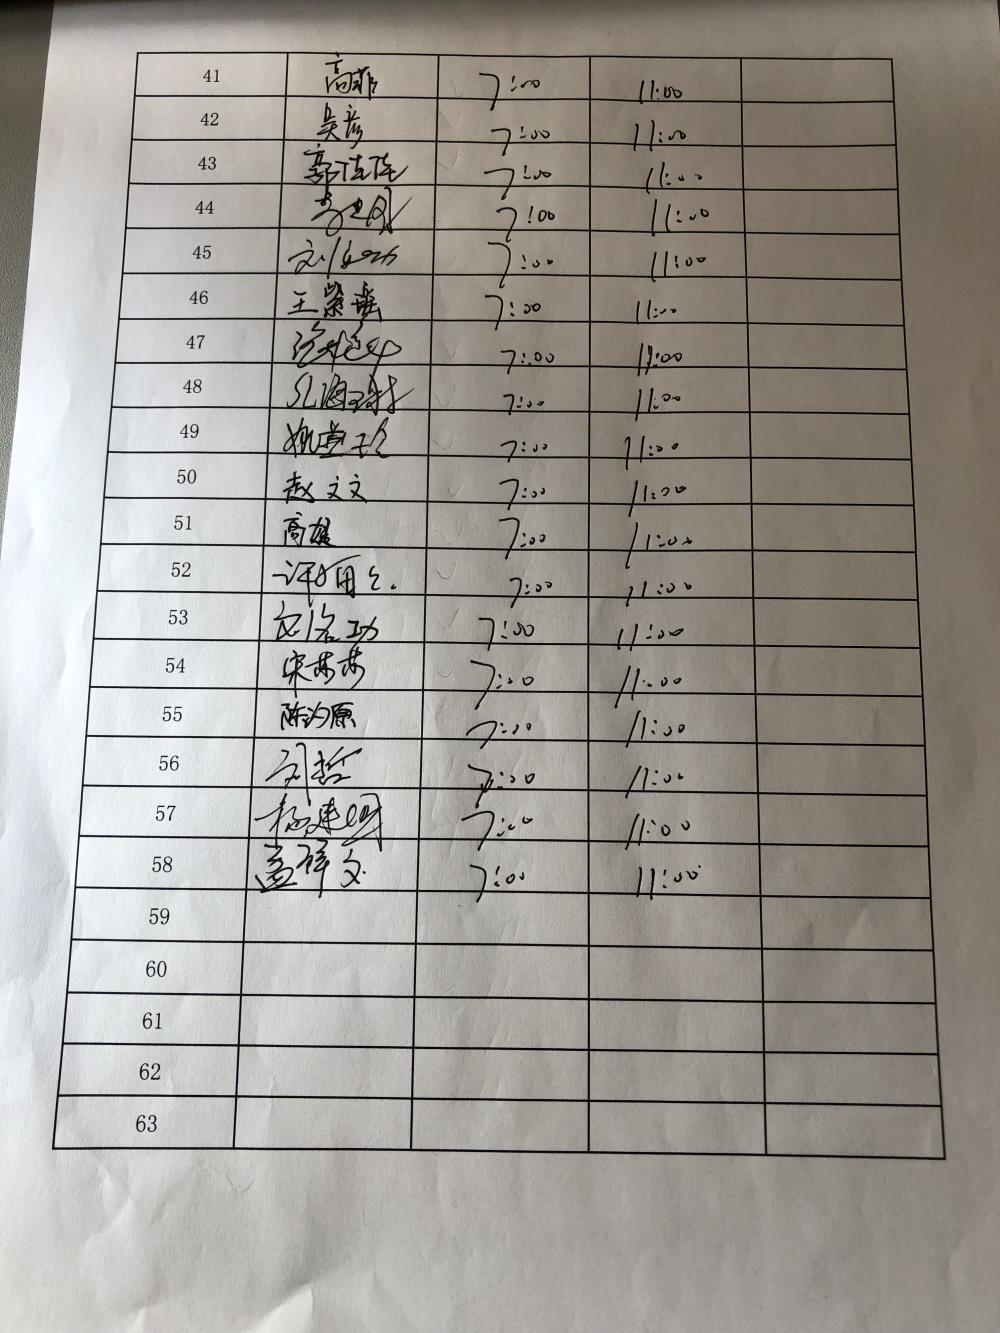 41 高菲 7:00 11:00
42 吴彦 7:00 11:00
43 郭佳佳 7:00 11:00
44 7:00 11:00
45 7:00 11:00
46 王紫瑶 7:00 11:00
47 7:00 11:00
48 7:00 11:00
49 7:00 11:00
50 赵文文 7:00 11:00
51 高雄 7:00 11:00
52 7:00 11:00
53 7:00 11:00
54 宋苏苏 7:00 11:00
55 陈沟原 7:00 11:00
56 刘哲 7:00 11:00
57 杨建明 7:00 11:00
58 孟祥文 7:00 11:00
59
60
61
62
63